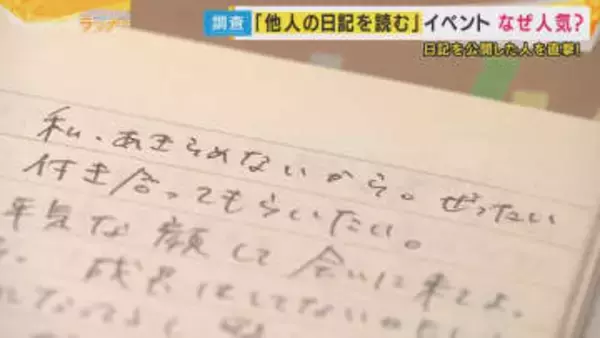 調査 「他人の日記を読む」イベント なぜ人気?
日記を公開した人を直撃!
私、あきらめないから。ぜったい
付き合ってもらいたい。
平気な顔して会いに来てよ。
成長はしてないの